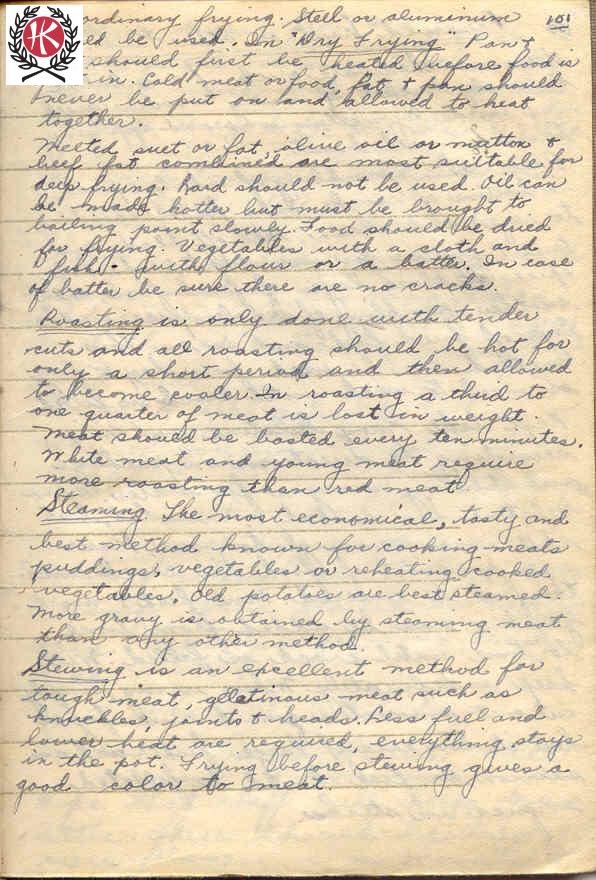 ordinary frying. Steel or aluminum 101
be used. In "Dry Frying" Pan &
should first be heated before food is
in. Cold meat or food, fat & pan should
never be put on and allowed to heat
together.
Melted suet or fat, olive oil or mutton &
beef fat combined are most suitable for
deep frying. Lard should not be used. Oil can
be made hotter but must be brought to
boiling point slowly. Food should be dried
for frying. Vegetables with a cloth and
fish - with flour or a batter. In case
of batter be sure there are no cracks.
Roasting is only done with tender
cuts and all roasting should be hot for
only a short period and then allowed
to become cooler. In roasting a third to
one quarter of meat is lost in weight.
Meat should be basted every ten minutes.
White meat and young meat require
more roasting than red meat
Steaming The most economical, tasty and
best method known for cooking meats
puddings, vegetables or reheating cooked
vegetables. Old potatoes are best steamed.
More gravy is obtained by steaming meat
than any other method.
Stewing is an excellent method for
tough meat, gelatinous meat such as
knuckles, joints & heads. Less fuel and
lower heat are required, everything stays
in the pot. Frying before stewing gives a
good color to meat.
K